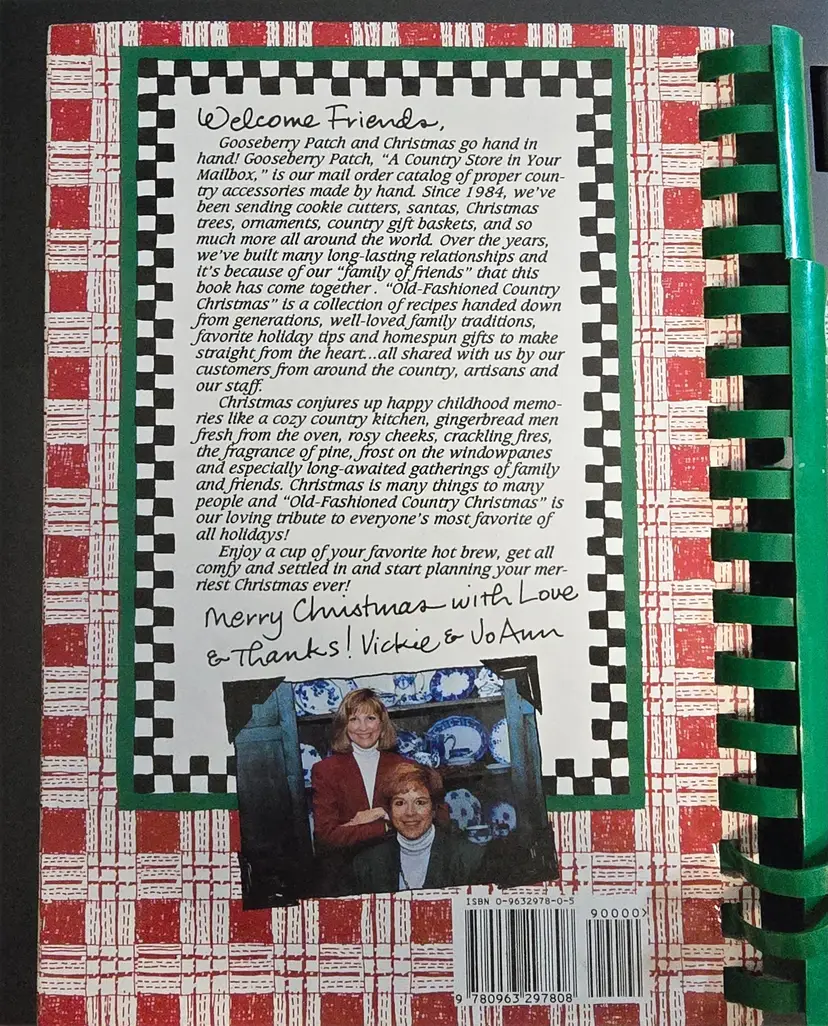 Welcome Friends,
Gooseberry Patch and Christmas go hand in
hand! Gooseberry Patch, "A Country Store in Your
Mailbox," is our mail order catalog of proper coun-
try accessories made by hand. Since 1984, we've
been sending cookie cutters, santas, Christmas
trees, ornaments, country gift baskets, and so
much more all around the world. Over the years,
we've built many long-lasting relationships and
it's because of our "family of friends" that this
book has come together. "Old-Fashioned Country
Christmas" is a collection of recipes handed down
from generations, well-loved family traditions,
favorite holiday tips and homespun gifts to make
straight from the heart...all shared with us by our
customers from around the country, artisans and
our staff.
Christmas conjures up happy childhood memo-
ries like a cozy country kitchen, gingerbread men
fresh from the oven, rosy cheeks, crackling fires,
the fragrance of pine, frost on the windowpanes
and especially long-awaited gatherings of family
and friends. Christmas is many things to many
people and "Old-Fashioned Country Christmas" is
our loving tribute to everyone's most favorite of
all holidays!
Enjoy a cup of your favorite hot brew, get all
comfy and settled in and start planning your mer-
riest Christmas ever!
Merry Christmas with Love
& Thanks! Vickie & JoAnn
ISBN 0-9632978-0-5
90000>
9 780963 297808